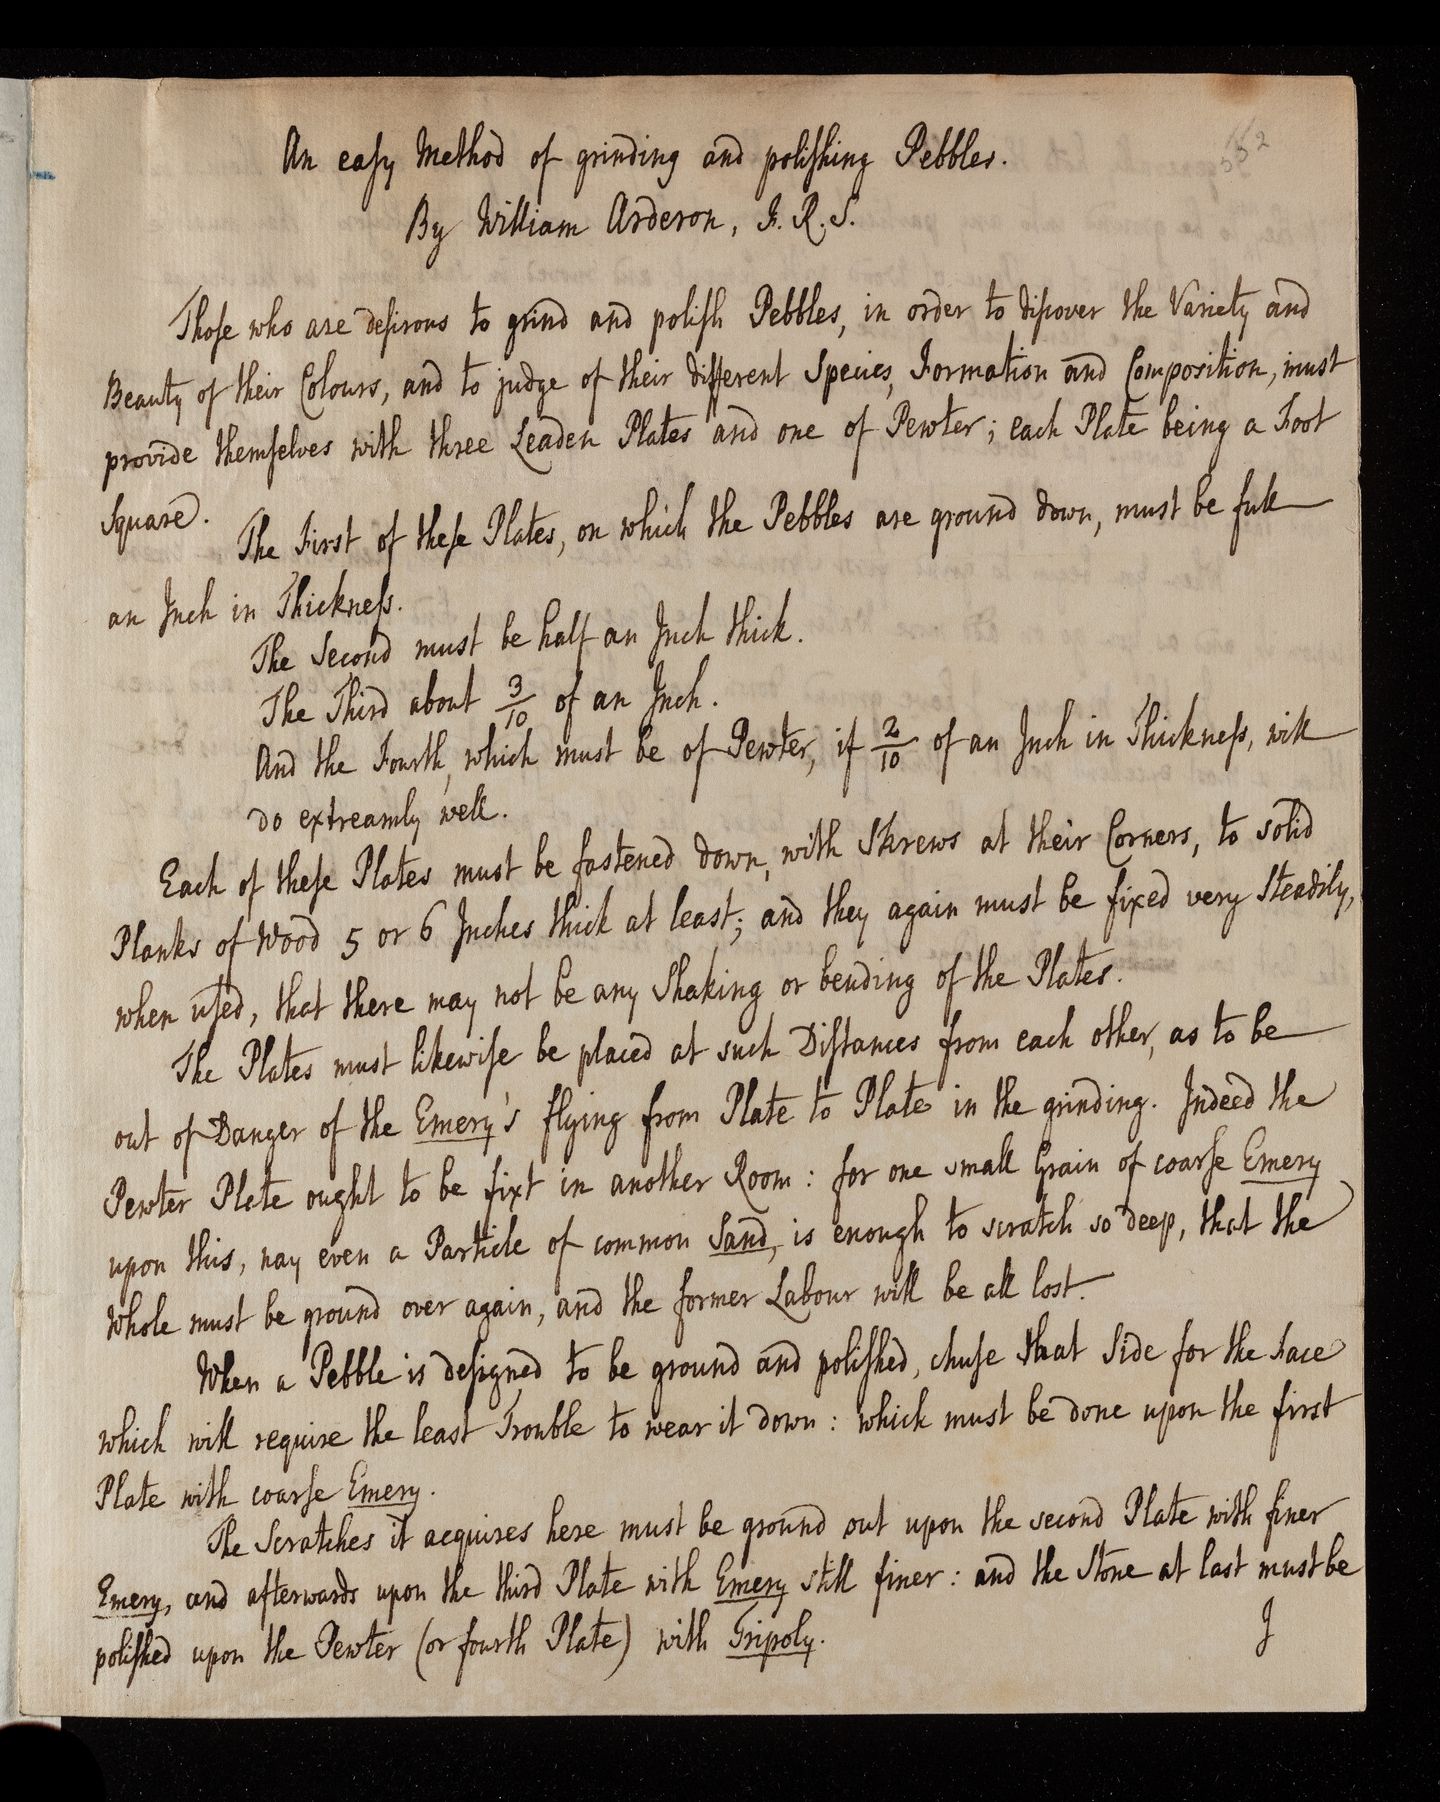 552
An easy Method of grinding and polishing Pebbles.
By William Arderon, F.R.S.
Those who are desirous to grind and polish Pebbles, in order to discover the Variety and
Beauty of their Colours, and to judge of their different Species, Formation and Composition, must
provide themselves with three Leaden Plates and one of Pewter; each Plate being a Foot
Square.
The First of these Plates, on which the Pebbles are ground down, must be full
an Inch in Thickness.
The Second must be half an Inch thick.
The Third about 3/10 of an Inch.
And the Fourth, which must be of Pewter, if 2/10 of an Inch in Thickness, will
do extreamly well.
Each of these Plates must be fastened down, with Skrews at their Corners, to solid
Planks of Wood 5 or 6 Inches thick at least; and they again must be fixed very Steadily,
when used, that there may not be any Shaking or bending of the Plates.
The Plates must likewise be placed at such Distances from each other, as to be
out of Danger of the Emery's flying from Plate to Plate in the grinding. Indeed the
Pewter Plate ought to be fixt in another Room: for one small Grain of coarse Emery
upon this, nay even a Particle of common Sand, is enough to scratch so deep, that the
Whole must be ground over again, and the former Labour will be all lost.
When a Pebble is designed to be ground and polished, chuse that Side for the Face
which will require the least Trouble to wear it down: which must be done upon the first
Plate with coarse Emery.
The Scratches it acquires here must be ground out upon the second Plate with finer
Emery, and afterwards upon the third Plate with Emery still finer: and the Stone at last must be
polished upon the Pewter (or fourth Plate) with Tripoly.
I